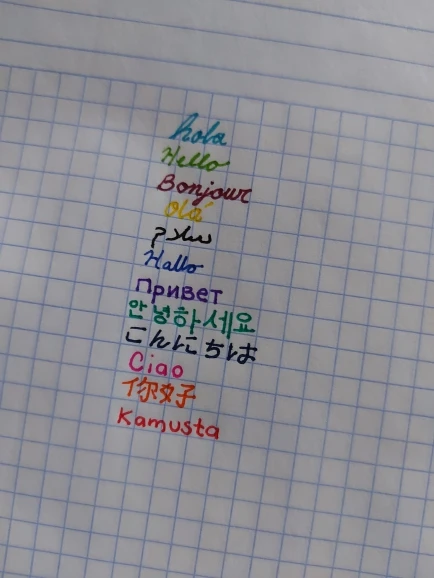 hola
Hello
Bonjour
Olá
سلام
Hallo
Привет
안녕하세요
こんにちは
Ciao
你好
Kamusta